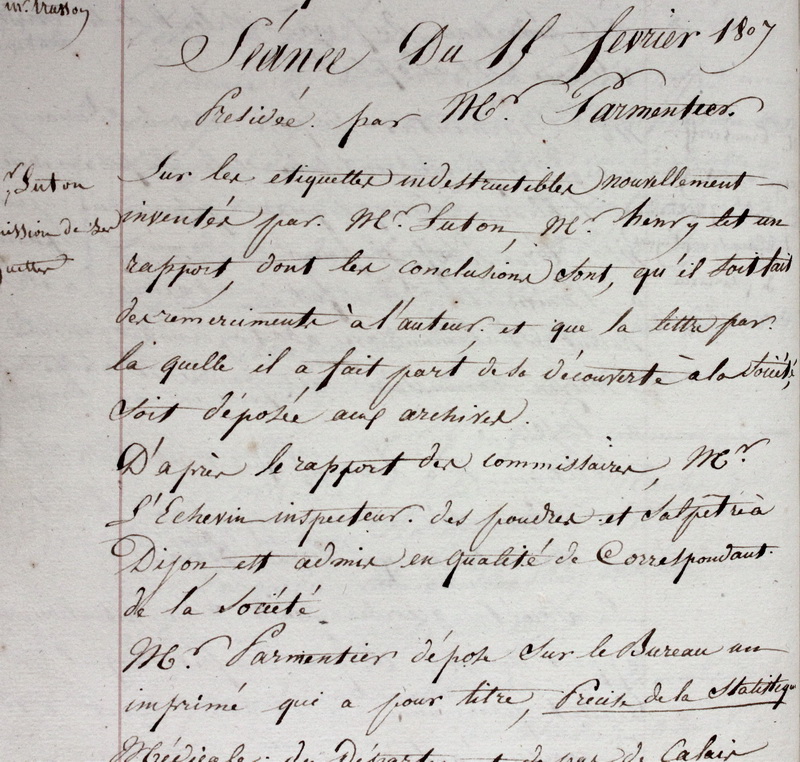 mr. trusson
Séance Du 15 fevrier 1807
Présidée par Mr. Parmentier.
Sur les etiquettes indestructibles nouvellement
inventés par Mr. Luton, Mr. henry lit un
rapport, dont les conclusions sont, qu'il soit fait
des remerciments à l'auteur et que la lettre par
la quelle il a fait part de sa découverte à la Société,
soit déposée aux archives.
D'après le rapport des commissaires, Mr.
L'Echevin inspecteur des poudres et Salpêtre à
Dijon, est admis en qualité de Correspondant
de la Société
Mr. Parmentier dépose sur le Bureau un
imprimé qui a pour titre, Précis de la Statistiq
Médicale du Départ de pas de Calais
r. Luton
mission de ses
quettes